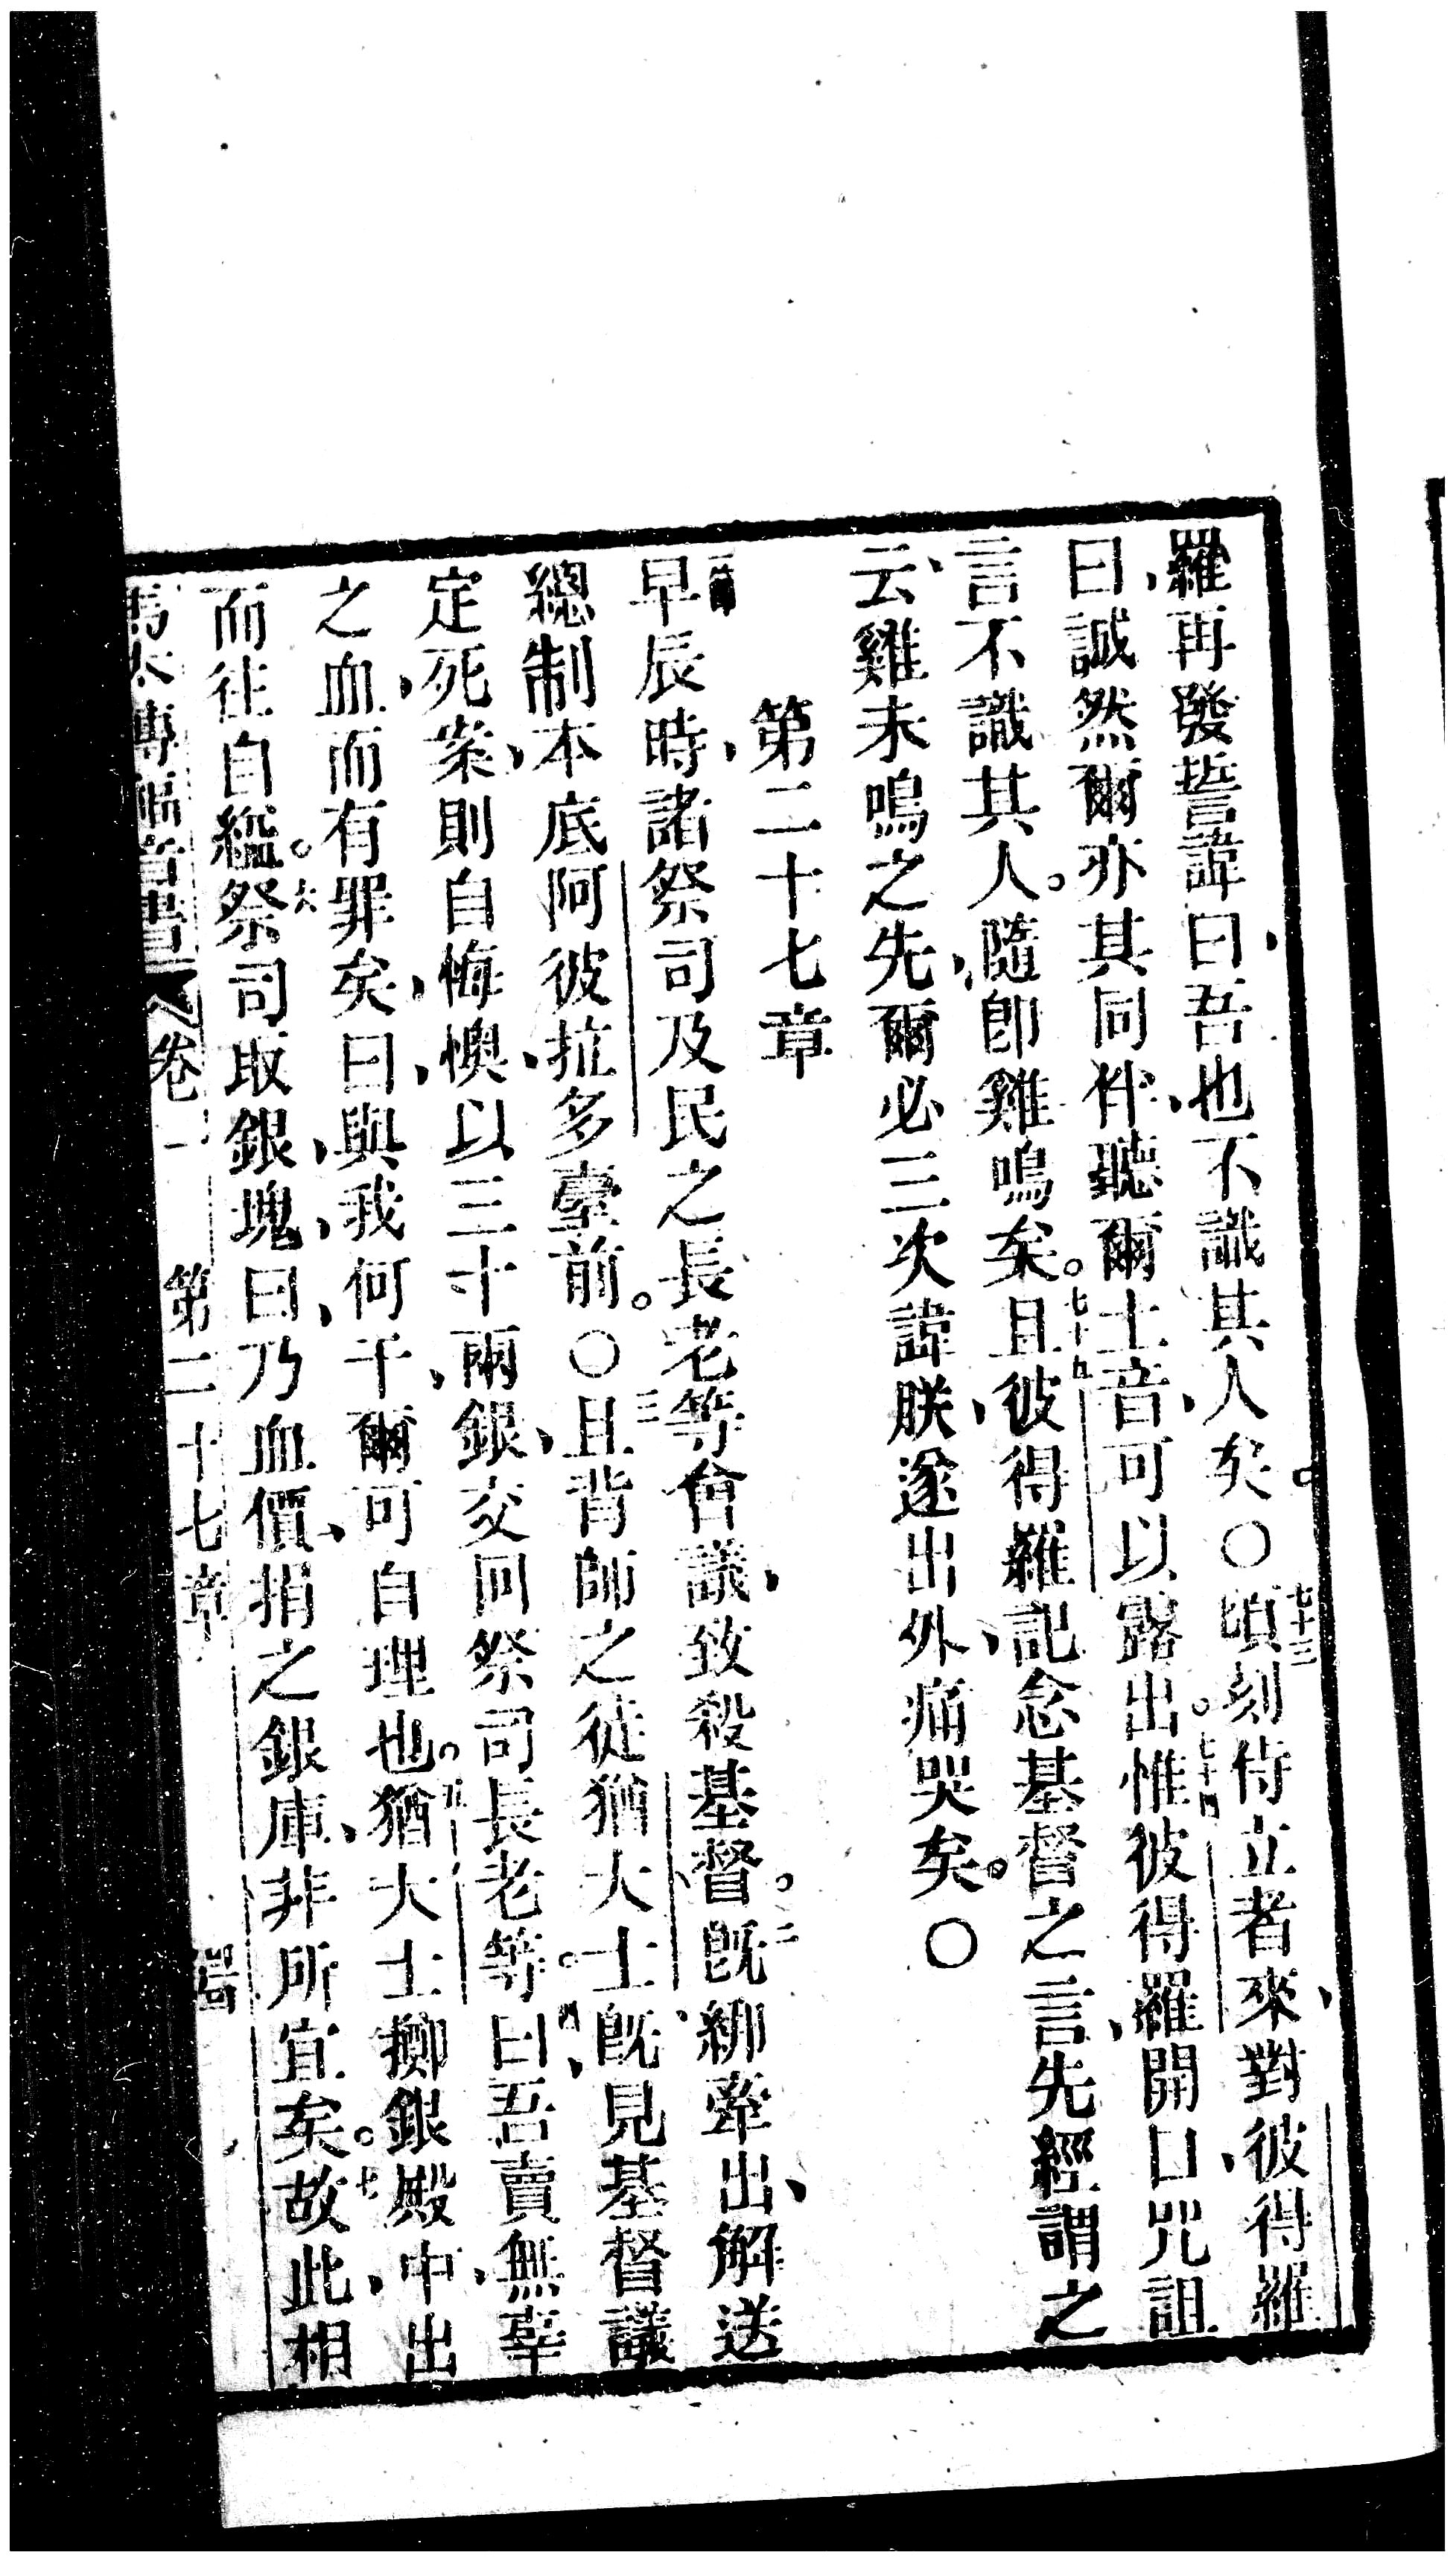 羅再發誓諱曰吾也不識其人矣。〇七十三頃刻侍立者來、對彼得羅
曰、誠然爾亦其同伴、聽爾土音、可以露出。七十四惟彼得羅開口、咒詛
言不識其人。隨即雞鳴矣。七十五且彼得羅記念基督之言、先經謂之
云、雞未鳴之先、爾必三次諱朕、遂出外、痛哭矣。〇
第二十七章
早辰時、諸祭司及民之長老等會議、致殺基督。二既綁牽出、解送
總制本底阿彼拉多臺前。〇三且背師之徒猶大士、既見基督議
定死案、則自悔懊、以三十兩銀、交回祭司長老等。四曰、吾賣無辜
之血、而有罪矣、曰、與我何干、爾可自理也。五猶大士擲銀殿中、出
而往自縊。六祭司取銀、塊、曰、乃血價、捐之銀庫、非所宜矣。七故此、相
馬太傳福音書 卷一 第二十七章